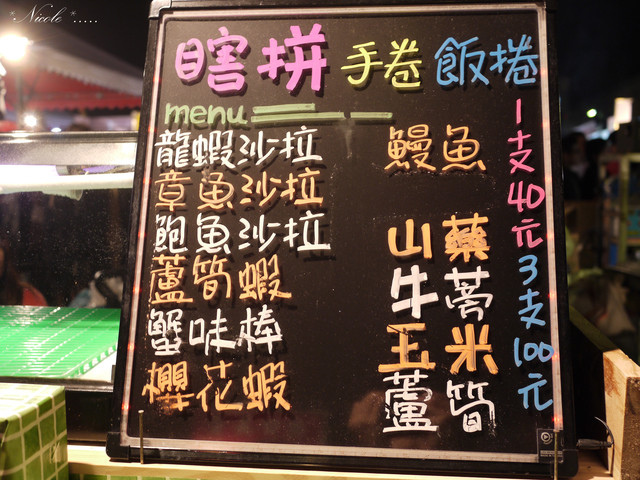 *Nicole*.....
瞎拼 手卷 飯捲
menu
龍蝦沙拉
章魚沙拉
鮑魚沙拉
蘆筍蝦
蟹味棒
櫻花蝦
鰻魚
山藥
牛蒡
玉米
蘆筍
1支40元
3支100元